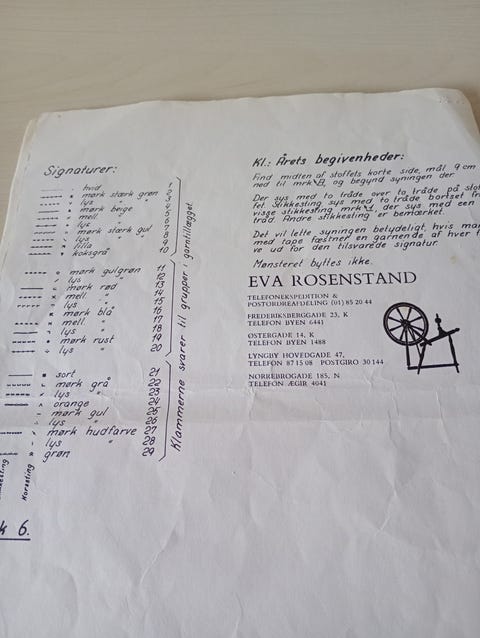 Signaturer:
hvid 1
mørk stærk grøn 2
lys " " 3
mørk beige 4
mell. " 5
lys " 6
mørk stærk gul 7
lys " " 8
lilla 9
koksgrå 10
mørk gulgrøn 11
lys " 12
mørk rød 13
mell. " 14
lys " 15
mørk blå 16
mell. " 17
lys " 18
mørk rust 19
lys " 20
sort 21
mørk grå 22
lys " 23
orange 24
mørk gul 25
lys " 26
mørk hudfarve 27
lys " 28
grøn 29
Korssting
Klammerne svarer til grupper i garntillægget.
k 6.
Kl.: Årets begivenheder:
Find midten af stoffets korte side, mål 9 cm
ned til mrk. B, og begynd syningen der.
Der sys med to tråde over to tråde på stof
fet. Stikkesting sys med to tråde bortset fra
visse stikkesting mrk. 1, der sys med een
tråd. Andre stikkesting er bemærket.
Det vil lette syningen betydeligt, hvis man
med tape fæstner en garnende af hver f
ve ud for den tilsvarende signatur.
Mønsteret byttes ikke.
EVA ROSENSTAND
TELEFONEKSPEDITION &
POSTORDREAFDELING (01) 85 20 44
FREDERIKSBERGGADE 23, K
TELEFON BYEN 6441
ØSTERGADE 14, K
TELEFON BYEN 1488
LYNGBY HOVEDGADE 47,
TELEFON 87 15 08 POSTGIRO 30 144
NØRREBROGADE 185, N
TELEFON ÆGIR 4041